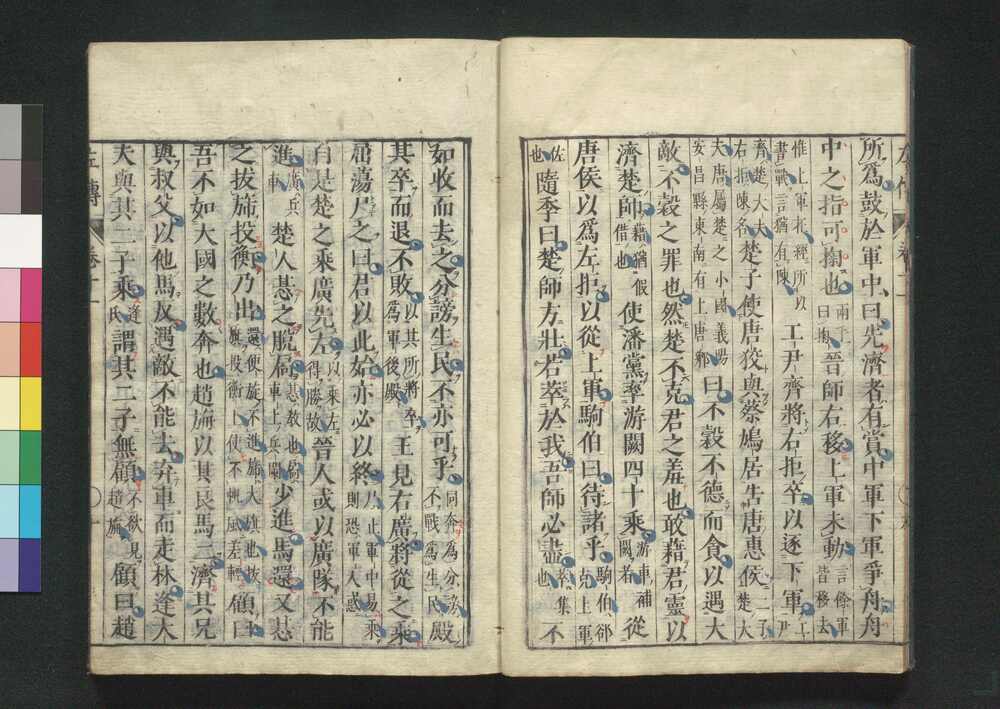 所爲鼓於軍中曰先濟者有賞中軍下軍爭舟舟
中之指可掬也兩手曰掬晉師右移上軍未動言餘軍皆移去
惟上軍在經所以書戰言猶有陳工尹齊將右拒卒以逐下軍工尹
齊楚大夫右拒陳名楚子使唐狡與蔡鳩居告唐惠侯二子楚大
夫唐屬楚之小國義陽安昌縣東南有上唐鄉曰不穀不德而貪以遇大
敵不穀之罪也然楚不克君之羞也敢藉君靈以
濟楚師藉猶假借也使潘黨率游闕四十乘游車補闕者從
唐侯以爲左拒以從上軍駒伯曰待諸乎駒伯郤克上軍
佐也隨季曰楚師方壯若萃於我吾師必盡萃集也不
如收而去之分謗生民不亦可乎同奔爲分謗不戰爲生民殿
其卒而退不敗以其所將卒爲軍後殿王見右廣將從之乘
屈蕩尸之曰君以此始亦必以終尸止軍中易乘則恐軍人惑
自是楚之乘廣先左以乘左得勝故晉人或以廣隊不能
進廣兵車楚人惎之脫扃惎教也扃車上兵闌少進馬還又惎
之拔旆投衡乃出還便旋不進旆大旗也拔旆投衡上使不帆風差輕顧曰
吾不如大國之數奔也趙旃以其良馬二濟其兄
與叔父以他馬反遇敵不能去弃車而走林逢大
夫與其二子乘逢氏謂其二子無顧不欲見趙旃顧曰趙